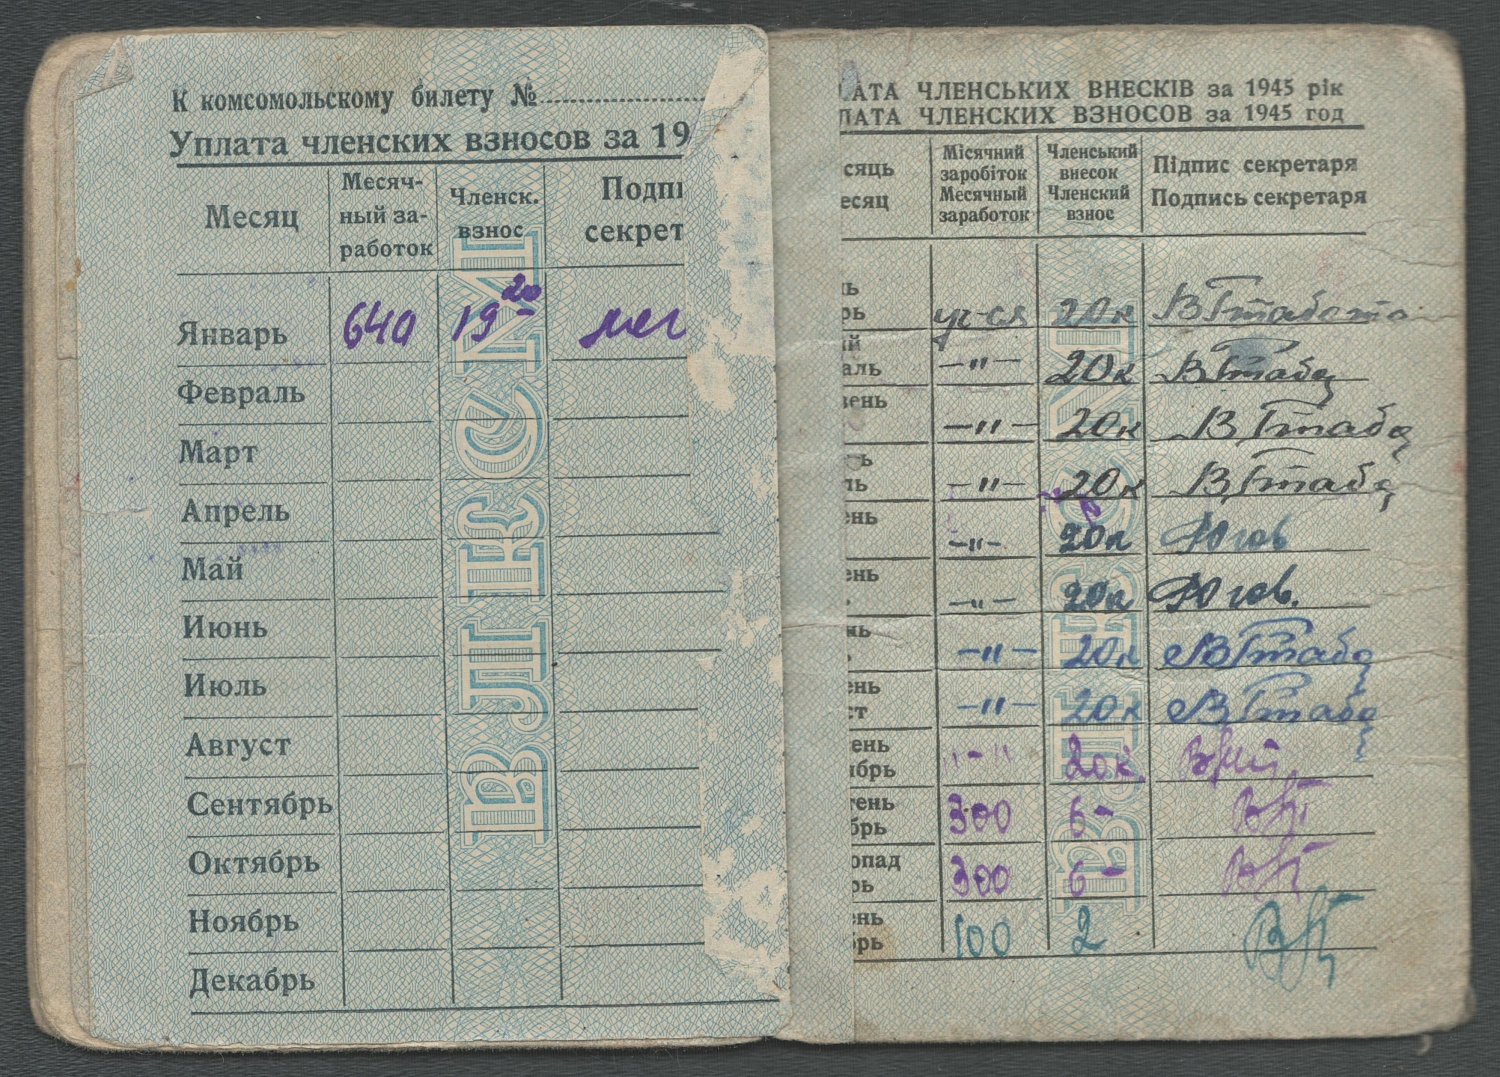 К комсомольскому билету №
Уплата членских взносов за 19
Месяц
Месяч-
ный за-
работок
Членск.
взнос
Подпи
секрет
Январь 640 19 20
Февраль
Март
Апрель
Май
Июнь
Июль
Август
Сентябрь
Октябрь
Ноябрь
Декабрь
ВЛКСМ
ЛАТА ЧЛЕНСЬКИХ ВНЕСКІВ за 1945 рік
ЛАТА ЧЛЕНСКИХ ВЗНОСОВ за 1945 год
сяць
есяц
Місячний
заробіток
Месячный
заработок
Членський
внесок
Членский
взнос
Підпис секретаря
Подпись секретаря
нь
рь уч-ся 20к
ий
аль —"— 20к
зень
—"— 20к
ь
ль —"— 20к
ень
—"— 20к
ень
—"— 20к
нь
ь —"— 20к
ень
ст —"— 20к
ень
ябрь "—" 20к.
тень
брь 300 6-
опад
рь 300 6-
ень
брь 100 2
ВЛКСМ